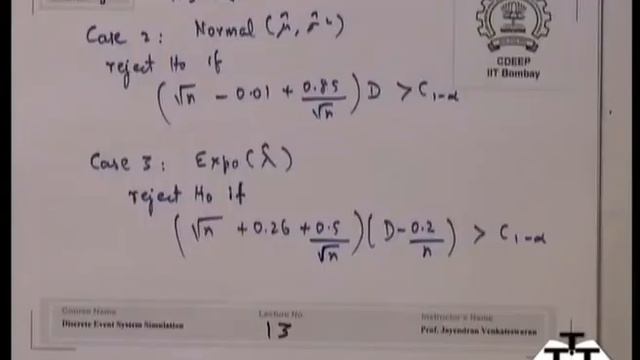 CDEEP
IIT Bombay
Case 2: Normal (μ̂, σ̂²)
reject Ho if
(√n - 0.01 + 0.85/√n) D > C₁₋α
Case 3: Expo(λ̂)
reject Ho if
(√n + 0.26 + 0.5/√n)(D - 0.2/n) > C₁₋α
Course Name
Discrete Event System Simulation
Lecture No.
13
Instructor's Name
Prof. Jayendran Venkateswaran